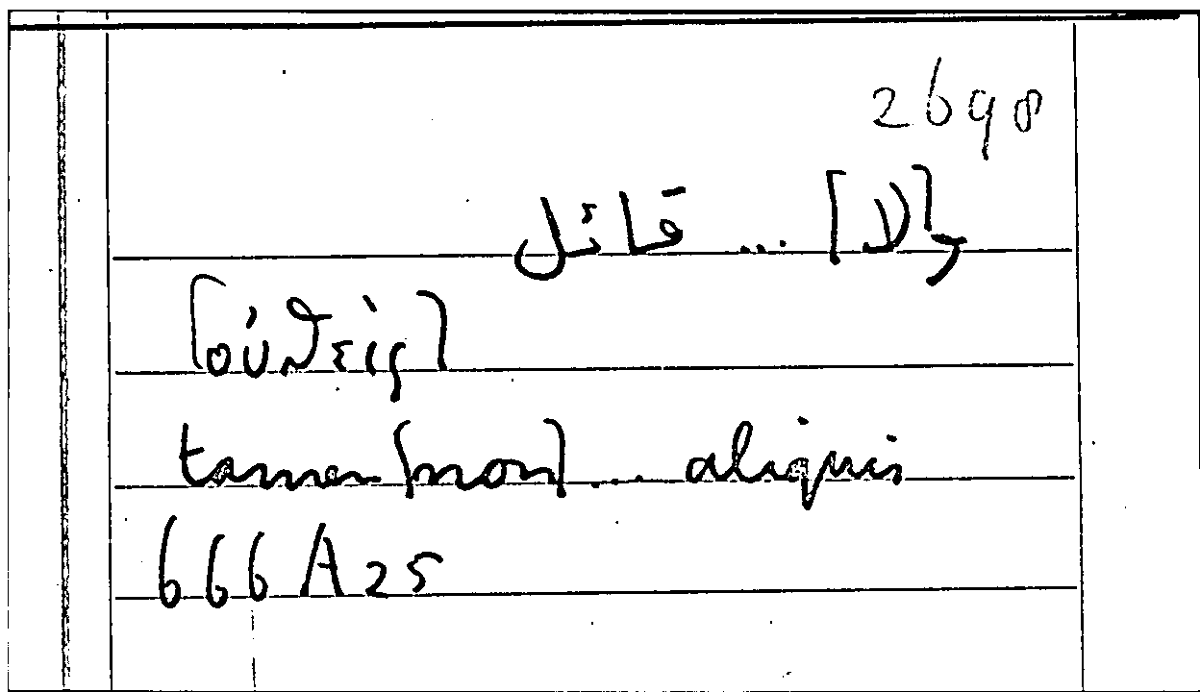 2698
و[لا] ... قائل
[οὐθείς]
tamen [non] ... aliquis
666 A 25